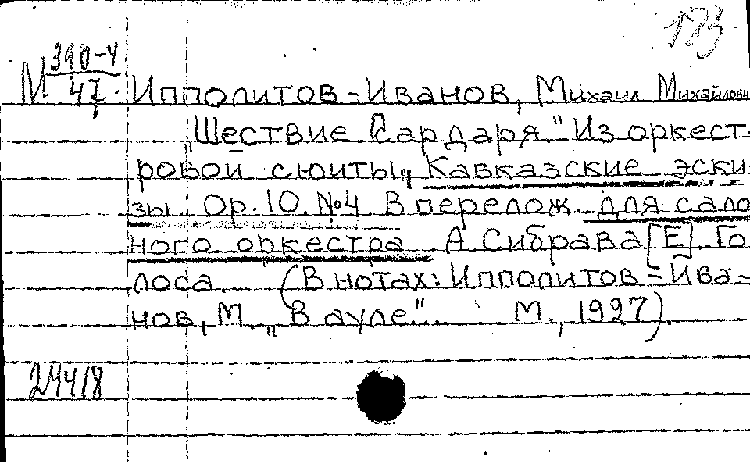 173
М 390-4
47. Ипполитов-Иванов, Михаил Михайлович
Шествие Сардаря" Из оркест-
ровой сюиты „Кавказские эски-
зы Ор. 10. №4 В перелож. для сало
ного оркестра А. Сибрава [Е]. Го
лоса. (В нотах: Ипполитов-Ива-
нов, М. „В ауле". М., 1927).
29418